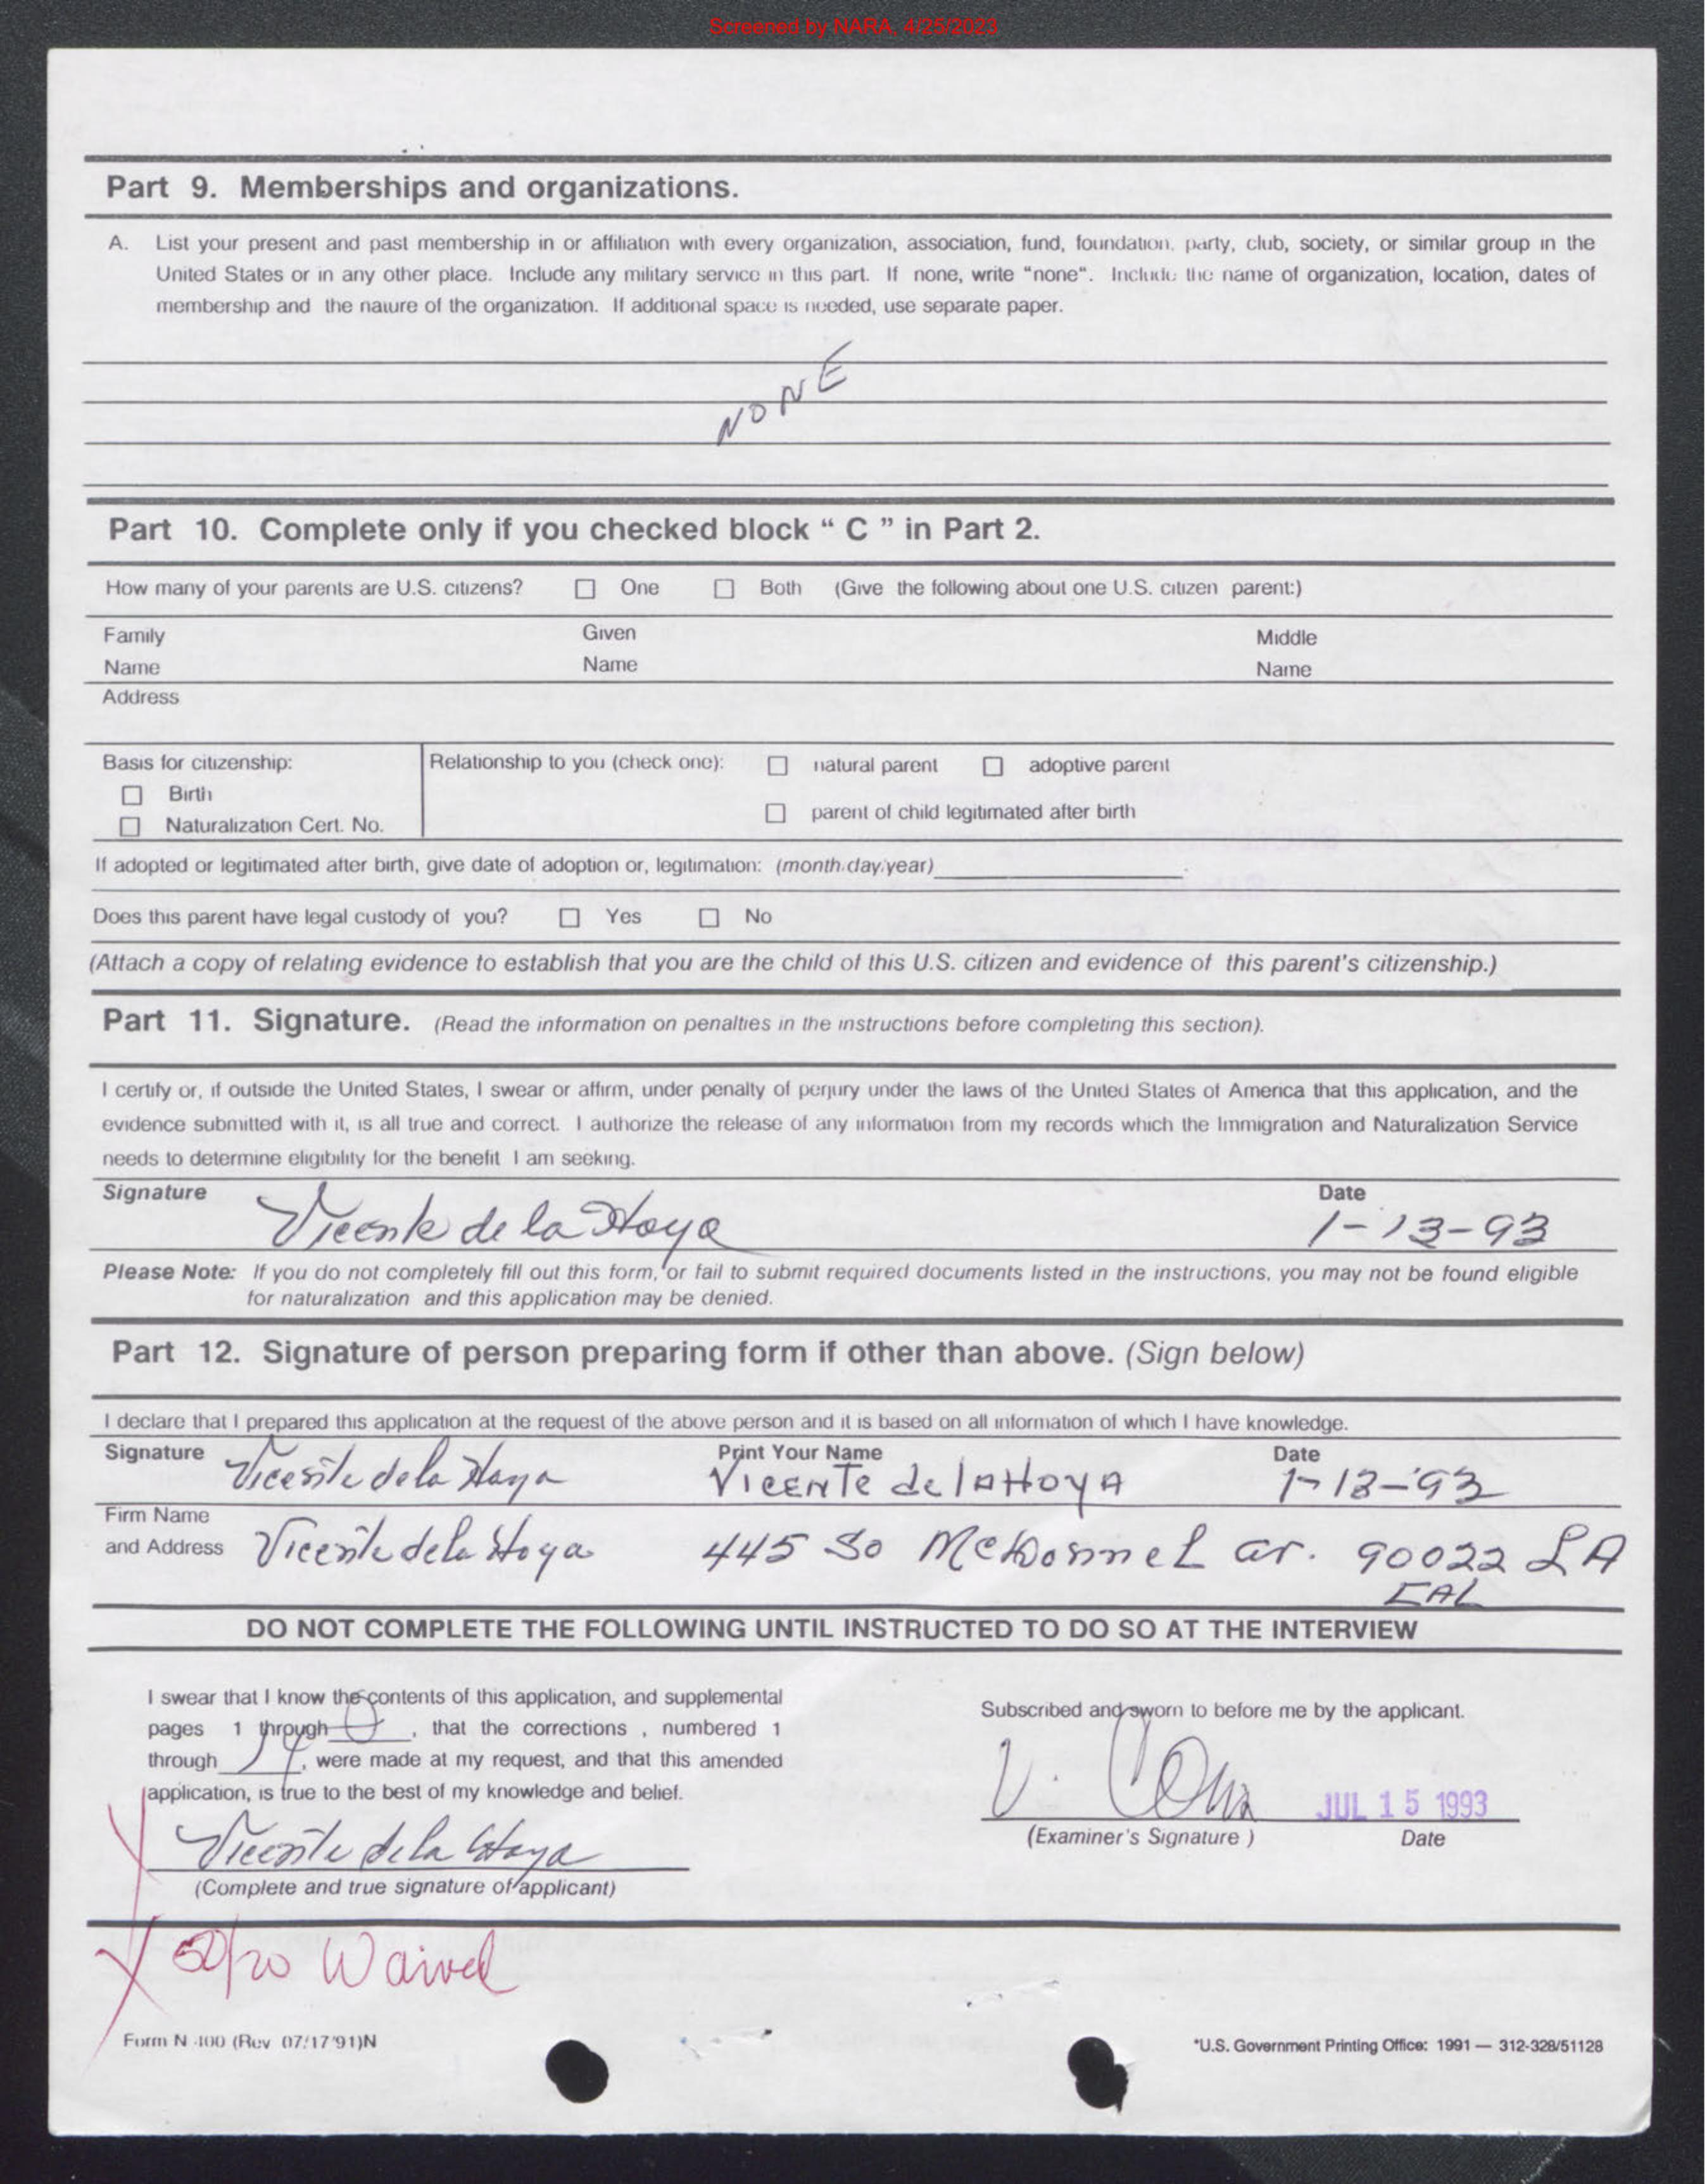 Screened by NARA, 4/25/2023
Part 9. Memberships and organizations.
A. List your present and past membership in or affiliation with every organization, association, fund, foundation, party, club, society, or similar group in the
United States or in any other place. Include any military service in this part. If none, write "none". Include the name of organization, location, dates of
membership and the nature of the organization. If additional space is needed, use separate paper.
NONE
Part 10. Complete only if you checked block " C " in Part 2.
How many of your parents are U.S. citizens? ☐ One ☐ Both (Give the following about one U.S. citizen parent:)
Family Given Middle
Name Name Name
Address
Basis for citizenship: Relationship to you (check one): ☐ natural parent ☐ adoptive parent
☐ Birth
☐ parent of child legitimated after birth
☐ Naturalization Cert. No.
If adopted or legitimated after birth, give date of adoption or, legitimation: (month/day/year)
Does this parent have legal custody of you? ☐ Yes ☐ No
(Attach a copy of relating evidence to establish that you are the child of this U.S. citizen and evidence of this parent's citizenship.)
Part 11. Signature. (Read the information on penalties in the instructions before completing this section).
I certify or, if outside the United States, I swear or affirm, under penalty of perjury under the laws of the United States of America that this application, and the
evidence submitted with it, is all true and correct. I authorize the release of any information from my records which the Immigration and Naturalization Service
needs to determine eligibility for the benefit I am seeking.
Signature Vicente de la Hoya Date 1-13-93
Please Note: If you do not completely fill out this form, or fail to submit required documents listed in the instructions, you may not be found eligible
for naturalization and this application may be denied.
Part 12. Signature of person preparing form if other than above. (Sign below)
I declare that I prepared this application at the request of the above person and it is based on all information of which I have knowledge.
Signature Print Your Name Date
Vicente de la Hoya Vicente de la Hoya 1-13-93
Firm Name
and Address Vicente de la Hoya 445 So McDonnel av. 90022 LA
CAL
DO NOT COMPLETE THE FOLLOWING UNTIL INSTRUCTED TO DO SO AT THE INTERVIEW
I swear that I know the contents of this application, and supplemental
pages 1 through , that the corrections , numbered 1
through , were made at my request, and that this amended
application, is true to the best of my knowledge and belief.
Vicente de la Hoya
(Complete and true signature of applicant)
Subscribed and sworn to before me by the applicant.
JUL 15 1993
(Examiner's Signature ) Date
50/20 Waived
Form N-400 (Rev 07/17/91)N
*U.S. Government Printing Office: 1991 — 312-328/51128